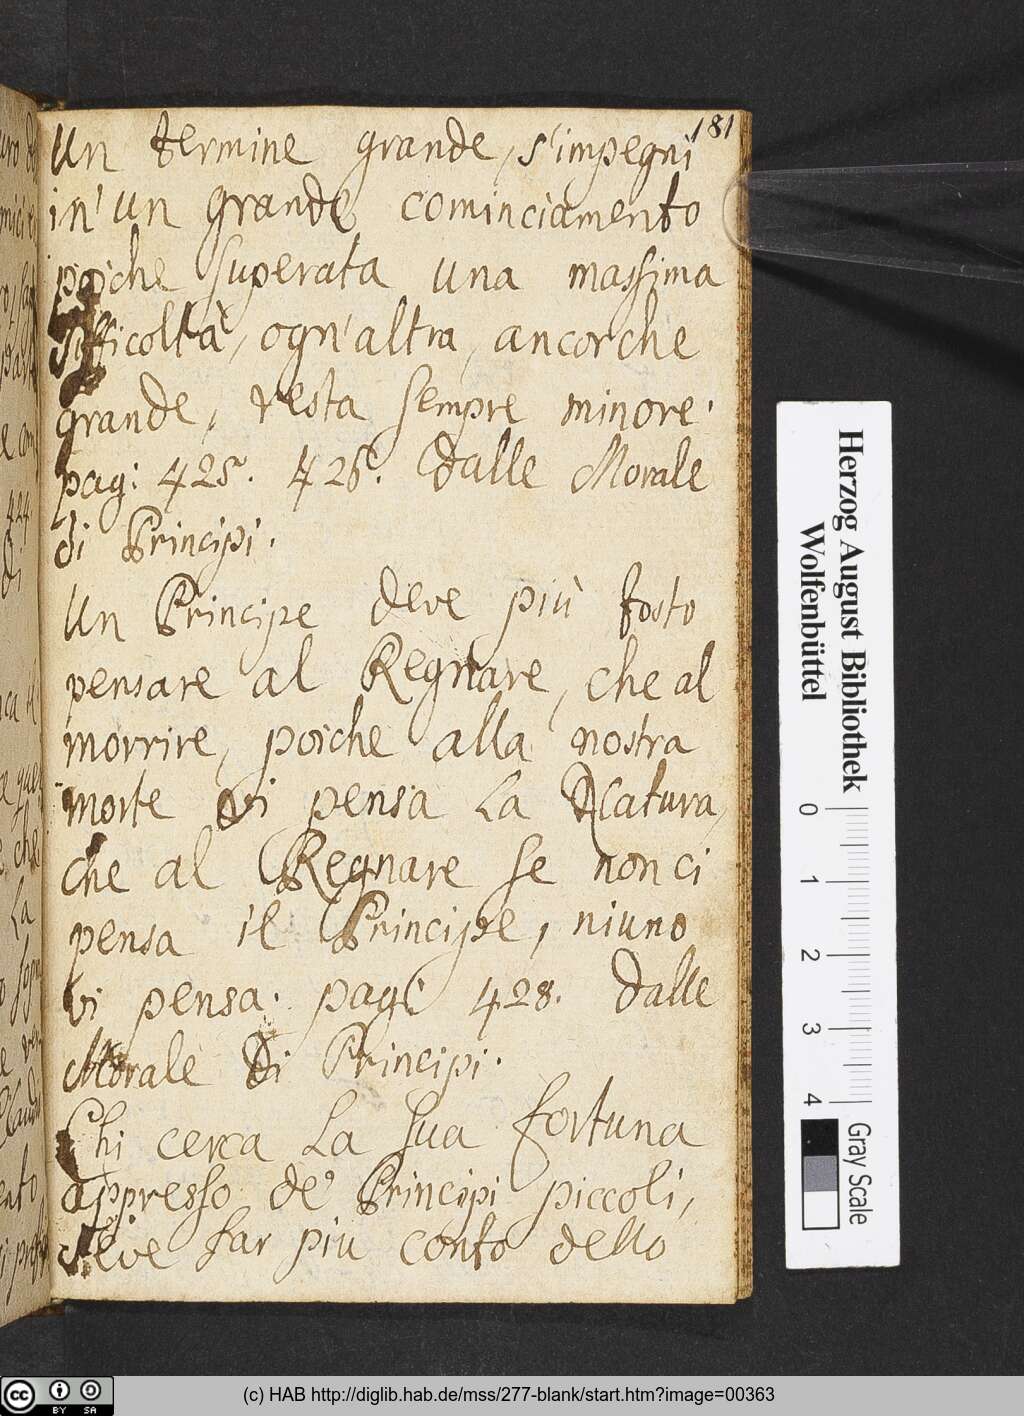 181
Un termine grande, s'impegni
in' un grande cominciamento
poiche superata una massima
difficoltà, ogn'altra, ancorche
grande, resta sempre minore.
pag: 425. 426. Dalle Morale
di Principi.
Un Principe deve più tosto
pensare al Regnare, che al
morrire, poiche alla nostra
morte vi pensa La Natura,
che al Regnare se non ci
pensa il Principe, niuno
vi pensa. pag: 428. Dalle
Morale Di Principi.
Chi cerca La sua fortuna
appresso de' Principi piccoli,
deve far più conto dello
Herzog August Bibliothek
Wolfenbüttel
0 1 2 3 4
Gray Scale
BY SA
(c) HAB http://diglib.hab.de/mss/277-blank/start.htm?image=00363